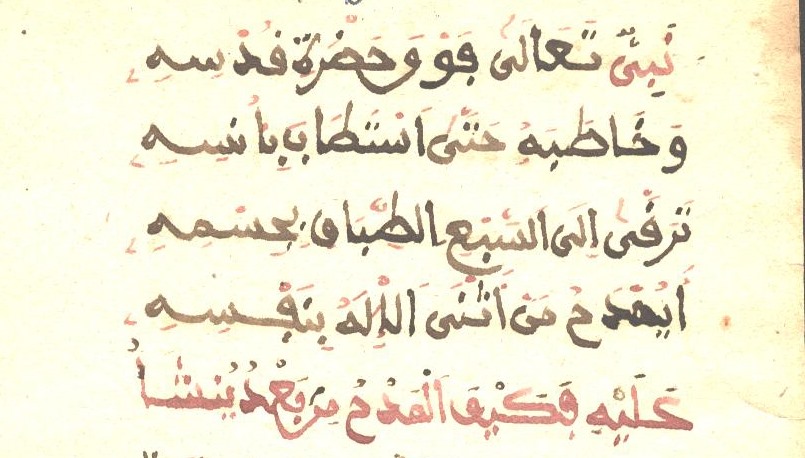 نَبِيٌّ تَعَالَى فَوْقَ حَضْرَةِ قُدْسِهِ
وَخَاطَبَهُ حَتَّى اَسْتَطَابَ بِأُنْسِهِ
تَرَقَّى إِلَى السَّبْعِ الطِّبَاقِ بِجِسْمِهِ
أَيُمْدَحُ مَنْ أَثْنَى الْإِلَهُ بِنَفْسِهِ
عَلَيْهِ فَكَيْفَ الْمَدْحُ مِنْ بَعْدُ يُنْشَأُ